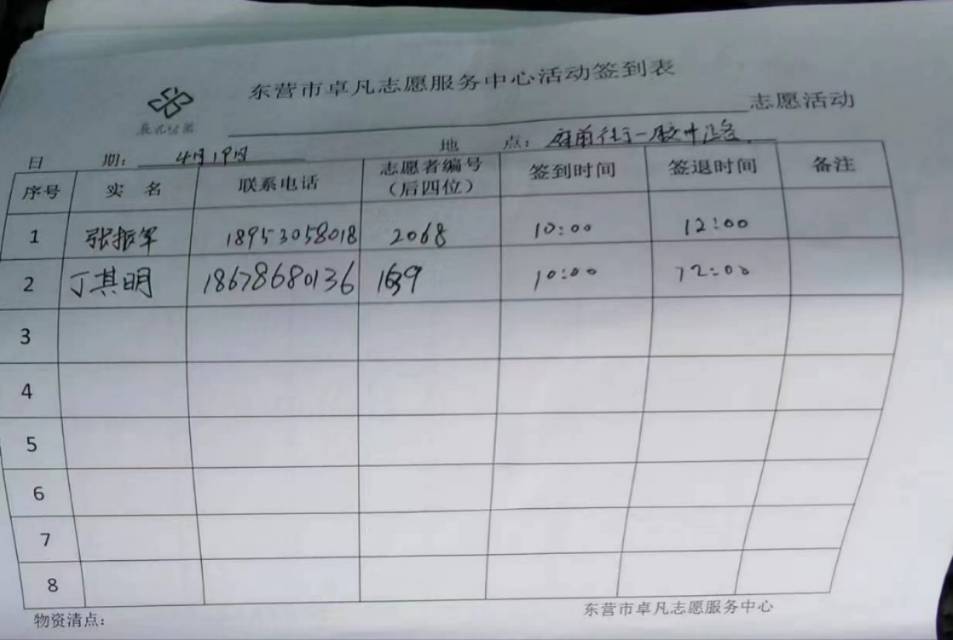 东营市卓凡志愿服务中心活动签到表
志愿活动
日 期： 4月19日 地 点： 府前街一胶州路
序号 实 名 联系电话 志愿者编号（后四位） 签到时间 签退时间 备注
1 张振军 18953058018 2068 10:00 12:00
2 丁其明 18678680136 10:00 12:00
3
4
5
6
7
8
物资清点：
东营市卓凡志愿服务中心